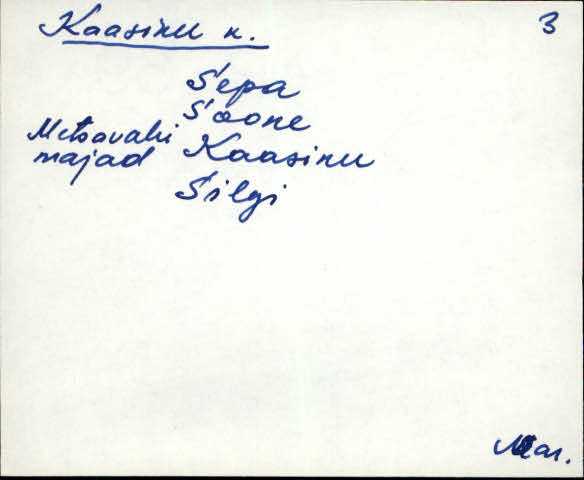 Kaasiku k. 3
Sepa
Soone
Metsavahi
majad Kaasiku
Silgi
Mar.